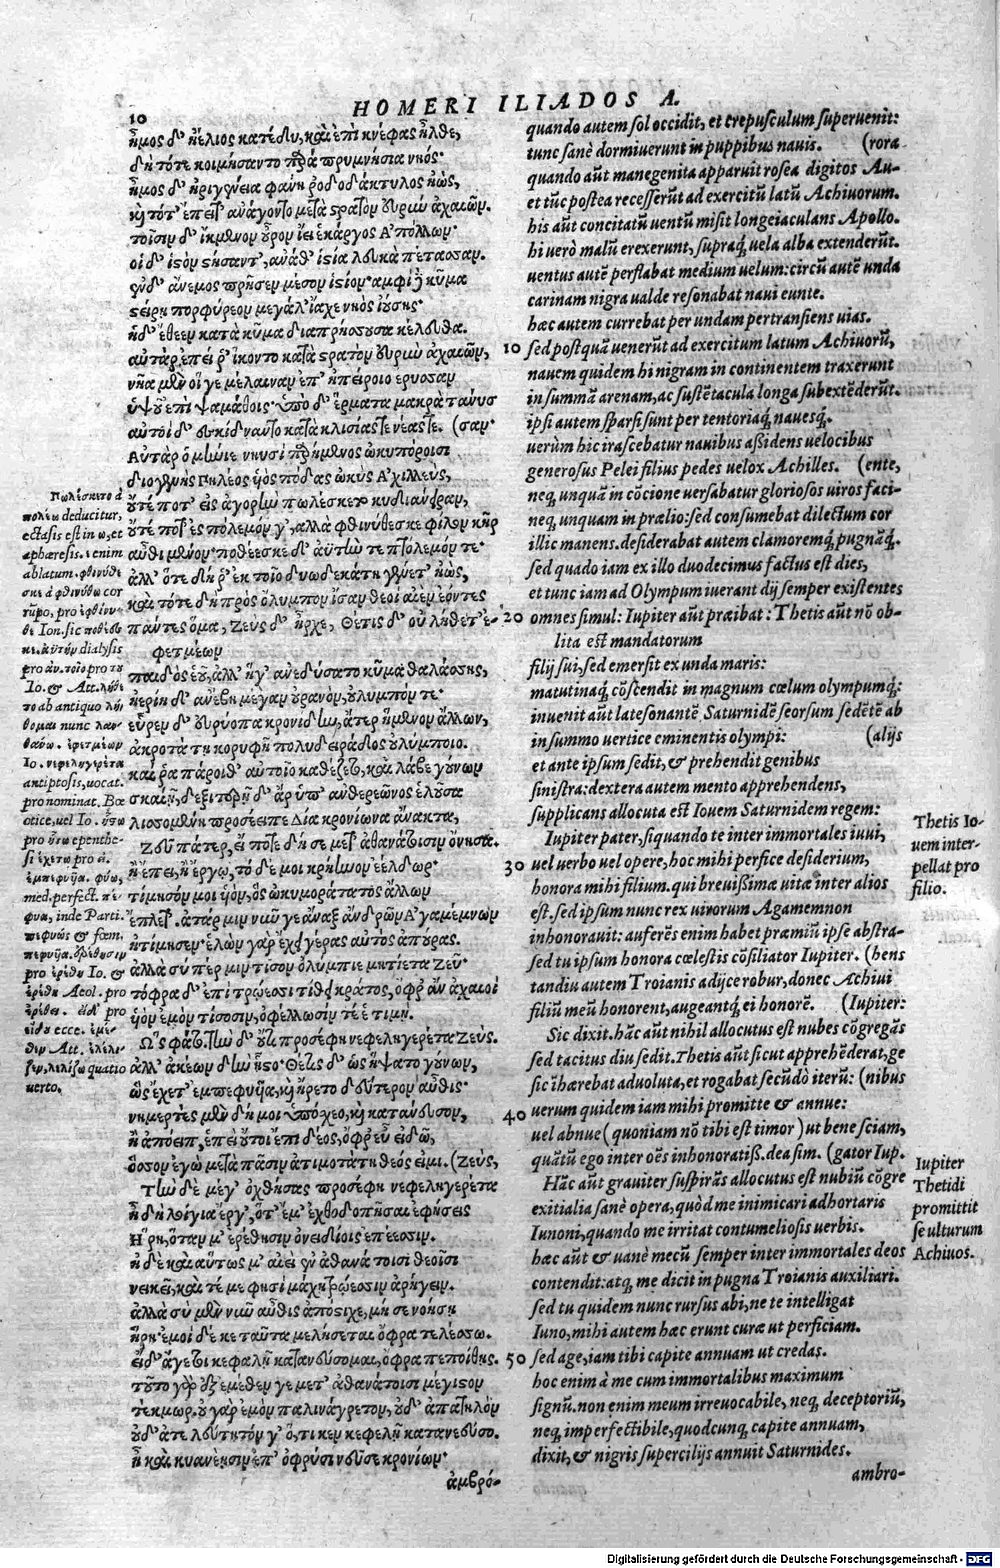 HOMERI ILIADOS A.
10
ἦμος δ' ἠέλιος κατέδυ, καὶ ἐπὶ κνέφας ἦλθε,
δὴ τότε κοιμήσαντο παρὰ πρυμνήσια νηός·
ἦμος δ' ἠριγένεια φάνη ῥοδοδάκτυλος ἠώς,
καὶ τότ' ἔπειτ' ἀνάγοντο μετὰ στρατὸν εὐρὺν ἀχαιῶν.
τοῖσιν δ' ἴκμενον οὖρον ἵει ἑκάεργος Ἀπόλλων·
οἱ δ' ἱστὸν στήσαντ', ἀνάθ' ἱστία λευκὰ πέτασσαν.
ἐν δ' ἄνεμος πρῆσεν μέσον ἱστίον· ἀμφὶ δὲ κῦμα
στείρῃ πορφύρεον μεγάλ' ἴαχε νηὸς ἰούσης·
ἡ δ' ἔθεεν κατὰ κῦμα διαπρήσσουσα κέλευθα.
αὐτὰρ ἐπεί ῥ' ἵκοντο κατὰ στρατὸν εὐρὺν ἀχαιῶν,
νῆα μὲν οἵγε μέλαιναν ἐπ' ἠπείροιο ἔρυσσαν
ὑψοῦ ἐπὶ ψαμάθοις· ὑπὸ δ' ἕρματα μακρὰ τάνυσ
αὐτοὶ δ' ἐσκίδναντο κατὰ κλισίας τε νέας τε. (σαν·
Αὐτὰρ ὁ μήνιε νηυσὶ παρήμενος ὠκυπόροισι
διογενὴς Πηλέος υἱὸς πόδας ὠκὺς Ἀχιλλεύς,
οὔτε ποτ' εἰς ἀγορὴν πωλέσκετο κυδιάνειραν,
οὔτε ποτ' ἐς πόλεμόν γ', ἀλλὰ φθινύθεσκε φίλον κῆρ
αὖθι μένων· ποθέεσκε δ' ἀϋτήν τε πτόλεμόν τε·
ἀλλ' ὅτε δή ῥ' ἐκ τοῖο δυωδεκάτη γένετ' ἠώς,
καὶ τότε δὴ πρὸς ὄλυμπον ἴσαν θεοὶ αἰὲν ἐόντες
πάντες ἅμα, Ζεὺς δ' ἦρχε, Θέτις δ' οὐ λήθετ' ἐ-
φετμέων
παιδὸς ἑοῦ, ἀλλ' ἥγ' ἀνεδύσατο κῦμα θαλάσσης,
ἠερίη δ' ἀνέβη μέγαν οὐρανὸν, οὔλυμπόν τε·
εὗρεν δ' εὐρύοπα κρονίδην, ἄτερ ἥμενον ἄλλων,
ἀκροτάτῃ κορυφῇ πολυδειράδος οὐλύμποιο.
καί ῥα πάροιθ' αὐτοῖο καθέζετο, καὶ λάβε γούνων
σκαιῇ, δεξιτερῇ δ' ἄρ ὑπ' ἀνθερεῶνος ἑλοῦσα
λισσομένη προσέειπε Δία κρονίωνα ἄνακτα,
Ζεῦ πάτερ, εἴ ποτε δή σε μετ' ἀθανάτοισιν ὄνησα.
ἢ ἔπει, ἢ ἔργῳ, τό δέ μοι κρήηνον ἐέλδωρ·
τίμησόν μοι υἱὸν, ὃς ὠκυμορώτατος ἄλλων
ἔπλετ'. ἀτάρ μιν νῦν γε ἄναξ ἀνδρῶν Ἀγαμέμνων
ἠτίμησεν· ἑλὼν γὰρ ἔχει γέρας αὐτὸς ἀπούρας.
ἀλλὰ σύ πέρ μιν τῖσον ὀλύμπιε μητίετα Ζεῦ·
τόφρα δ' ἐπὶ τρώεσσι τίθει κράτος, ὄφρ' ἂν ἀχαιοὶ
υἱὸν ἐμὸν τίσωσιν, ὀφέλλωσίν τέ ἑ τιμῇ.
Ὣς φάτο. τὴν δ' οὔτι προσέφη νεφεληγερέτα Ζεύς.
ἀλλ' ἀκέων δὴν ἧστο· Θέτις δ' ὡς ἥψατο γούνων,
ὣς ἔχετ' ἐμπεφυυῖα, καὶ ἤρετο δεύτερον αὖθις·
νημερτὲς μὲν δή μοι ὑπόσχεο, καὶ κατάνευσον,
ἢ ἀπόειπ', ἐπεὶ οὔτοι ἔπι δέος, ὄφρ' εὖ εἰδῶ,
ὅσσον ἐγὼ μετὰ πᾶσιν ἀτιμοτάτη θεός εἰμι. (Ζεύς,
Τὴν δὲ μέγ' ὀχθήσας προσέφη νεφεληγερέτα
ἦ δὴ λοίγια ἔργ', ὅτ' ἔμ' ἐχθοδοπῆσαι ἐφήσεις
Ἥρῃ, ὅταν μ' ἐρέθῃσιν ὀνειδίοις ἐπέεσσιν.
ἡ δὲ καὶ αὕτως μ' αἰεὶ ἐν ἀθανάτοισι θεοῖσι
νεικεῖ, καί τέ με φησὶ μάχῃ τρώεσσιν ἀρήγειν.
ἀλλὰ σὺ μὲν νῦν αὖθις ἀπόστιχε, μή σε νοήσῃ
ἥρη· ἐμοὶ δέ κε ταῦτα μελήσεται ὄφρα τελέσσω.
εἰ δ' ἄγε τοι κεφαλῇ κατανεύσομαι, ὄφρα πεποίθῃς.
τοῦτο γὰρ ἐξ ἐμέθεν γε μετ' ἀθανάτοισι μέγιστον
τέκμωρ. οὐ γὰρ ἐμὸν παλινάγρετον, οὐδ' ἀπατηλὸν
οὐδ' ἀτελεύτητόν γ' ὅ, τι κεν κεφαλῇ κατανεύσω.
ἦ καὶ κυανέῃσιν ἐπ' ὀφρύσι νεῦσε κρονίων·
ἀμβρό-
Πωλέσκετο ἀ
πολέω deducitur,
ectasis est in ω, et
aphæresis. ι enim
ablatum. φθινύθε
σκε à φθινύθω cor
rũpo, pro ἐφθίνυ-
θε Ion. sic ποθέεσ
κε. αὐτὴν dialysis
pro ἀν. τοῖο pro τοῦ
Io. & Att. λήθε
το ab antiquo λή
θομαι nunc λαν-
θάνω. ἐφετμέων
Io. νεφεληγερέτα
antiptosis, uocat.
pro nominat. Bœ
otice, uel Io.
pro epenthe-
si ἔχετο pro
ἐμπεφυῖα. φύω,
med. perfect. πέ-
φυα, inde Parti.
πεφυὼς & fœm.
πεφυῖα. ἐρέθησιν
pro ἐρέθῃ Io. &
ἐρέθῃ Aeol. pro
ἐρέθει. εἰδ' pro
ecce. ἐμέ-
θεν Att. ἐλέλι-
ξεν, λελίζω quatio
uerto.
quando autem sol occidit, et crepusculum superuenit:
tunc sanè dormiuerunt in puppibus nauis. (rora
quando aũt manegenita apparuit rosea digitos Au-
et tũc postea recesserũt ad exercitũ latũ Achiuorum.
his aũt concitatũ uentũ misit longeiaculans Apollo.
hi uerò malũ erexerunt, supraq́; uela alba extenderũt.
uentus autẽ perflabat medium uelum: circũ autẽ unda
carinam nigra ualde resonabat naui eunte.
hæc autem currebat per undam pertransiens uias.
10 sed postquã uenerũt ad exercitum latum Achiuorũ,
nauem quidem hi nigram in continentem traxerunt
in summã arenam, ac sustẽtacula longa subextẽderũt.
ipsi autem sparsi sunt per tentoriaq́; nauesq́;.
uerùm hic irascebatur nauibus aßidens uelocibus
generosus Pelei filius pedes uelox Achilles. (ente,
neq; unquã in cõcione uersabatur gloriosos uiros faci-
neq; unquam in prælio: sed consumebat dilectum cor
illic manens. desiderabat autem clamoremq́; pugnãq́;.
sed quãdo iam ex illo duodecimus factus est dies,
et tunc iam ad Olympum iuerant dij semper existentes
20 omnes simul: Iupiter aũt præibat: Thetis aũt nõ ob-
lita est mandatorum
filij sui, sed emersit ex unda maris:
matutinaq́; cõscendit in magnum cœlum olympumq́;:
inuenit aũt latesonantẽ Saturnidẽ seorsum sedẽtẽ ab
in summo uertice eminentis olympi: (alijs
et ante ipsum sedit, & prehendit genibus
sinistra: dextera autem mento apprehendens,
supplicans allocuta est Iouem Saturnidem regem:
Iupiter pater, siquando te inter immortales iuui,
30 uel uerbo uel opere, hoc mihi perfice desiderium,
honora mihi filium. qui breuißimæ uitæ inter alios
est. sed ipsum nunc rex uirorum Agamemnon
inhonorauit: auferẽs enim habet præmiũ ipse abstra-
sed tu ipsum honora cœlestis cõsiliator Iupiter. (hens
tandiu autem Troianis adijce robur, donec Achiui
filiũ meũ honorent, augeantq́; ei honorẽ. (Iupiter:
Sic dixit. hãc aũt nihil allocutus est nubes cõgregãs
sed tacitus diu sedit. Thetis aũt sicut apprehẽderat, ge
sic ihærebat aduoluta, et rogabat secũdò iterũ: (nibus
40 uerum quidem iam mihi promitte & annue:
uel abnue (quoniam nõ tibi est timor) ut bene sciam,
quãtũ ego inter oẽs inhonoratiß. dea sim. (gator Iup.
Hãc aũt grauiter suspirãs allocutus est nubiũ cõgre
exitialia sanè opera, quòd me inimicari adhortaris
Iunoni, quando me irritat contumeliosis uerbis.
hæc aũt & uanè mecũ semper inter immortales deos
contendit: atq; me dicit in pugna Troianis auxiliari.
sed tu quidem nunc rursus abi, ne te intelligat
Iuno, mihi autem hæc erunt curæ ut perficiam.
50 sed age, iam tibi capite annuam ut credas.
hoc enim à me cum immortalibus maximum
signũ. non enim meum irreuocabile, neq; deceptoriũ,
neq; imperfectibile, quodcunq; capite annuam,
dixit, & nigris supercilijs annuit Saturnides.
ambro-
Thetis Io-
uem inter-
pellat pro
filio.
Iupiter
Thetidi
promittit
se ulturum
Achiuos.
Digitalisierung gefördert durch die Deutsche Forschungsgemeinschaft - DFG